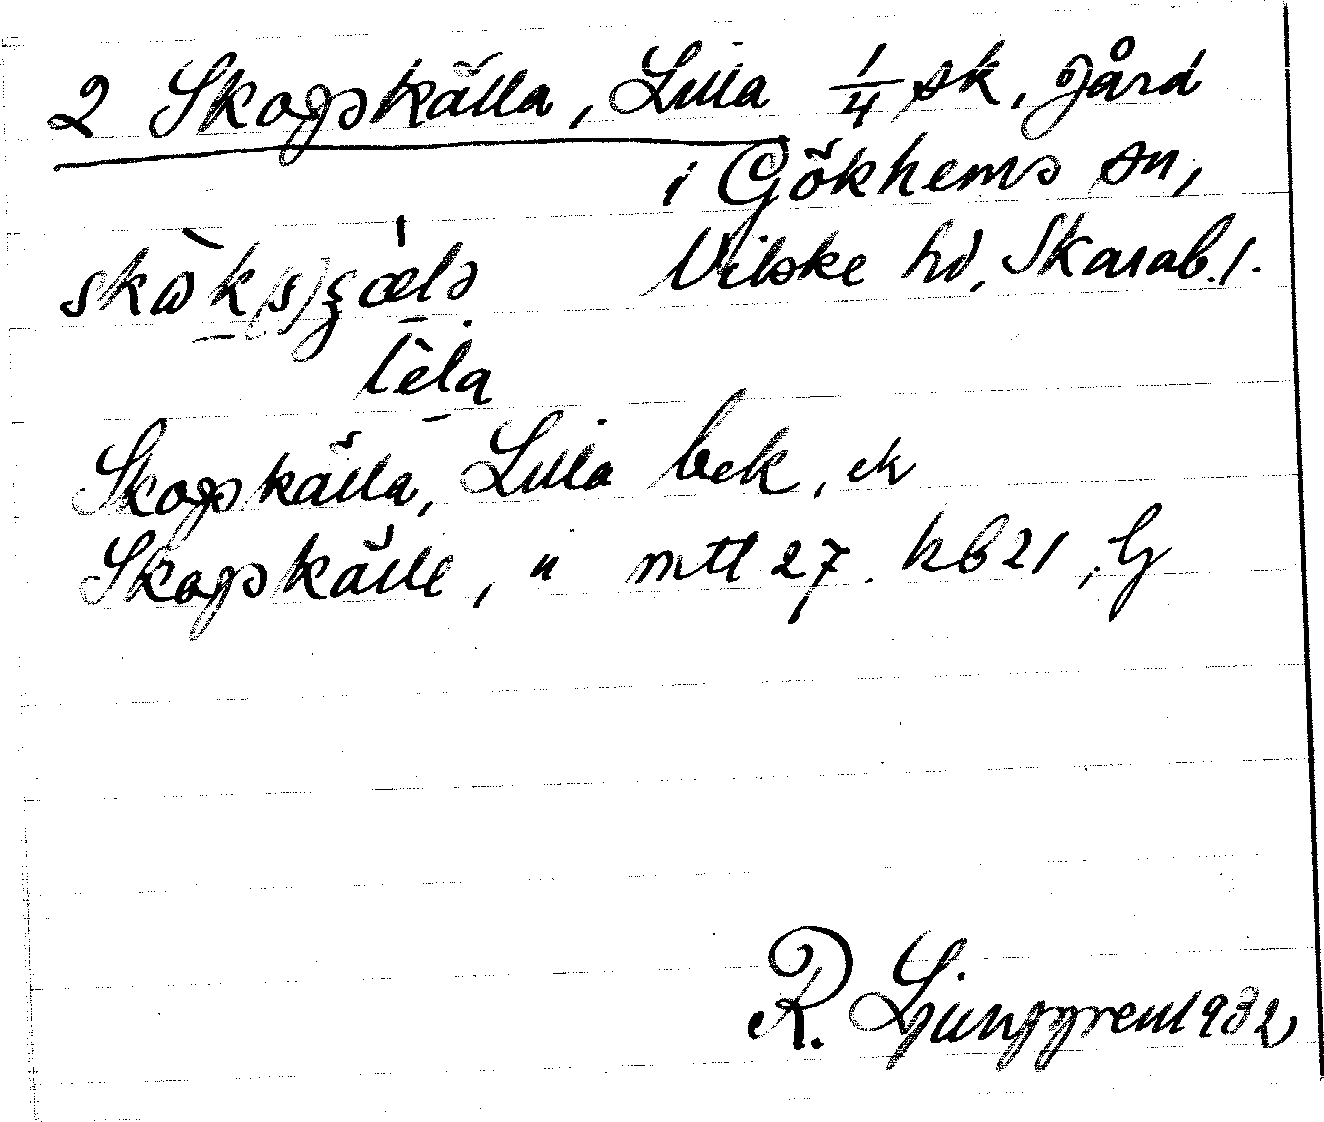 2 Skogskälla, Lilla 1/4 sk, gård
i Gökhems sn,
Vilske hd, Skarab. l.
skωk(s)ʒælə
lèla
Skogskälla, Lilla bek, ek
Skogskälle, " mtl 27. hb 21, G
R. Ljunggren 1932